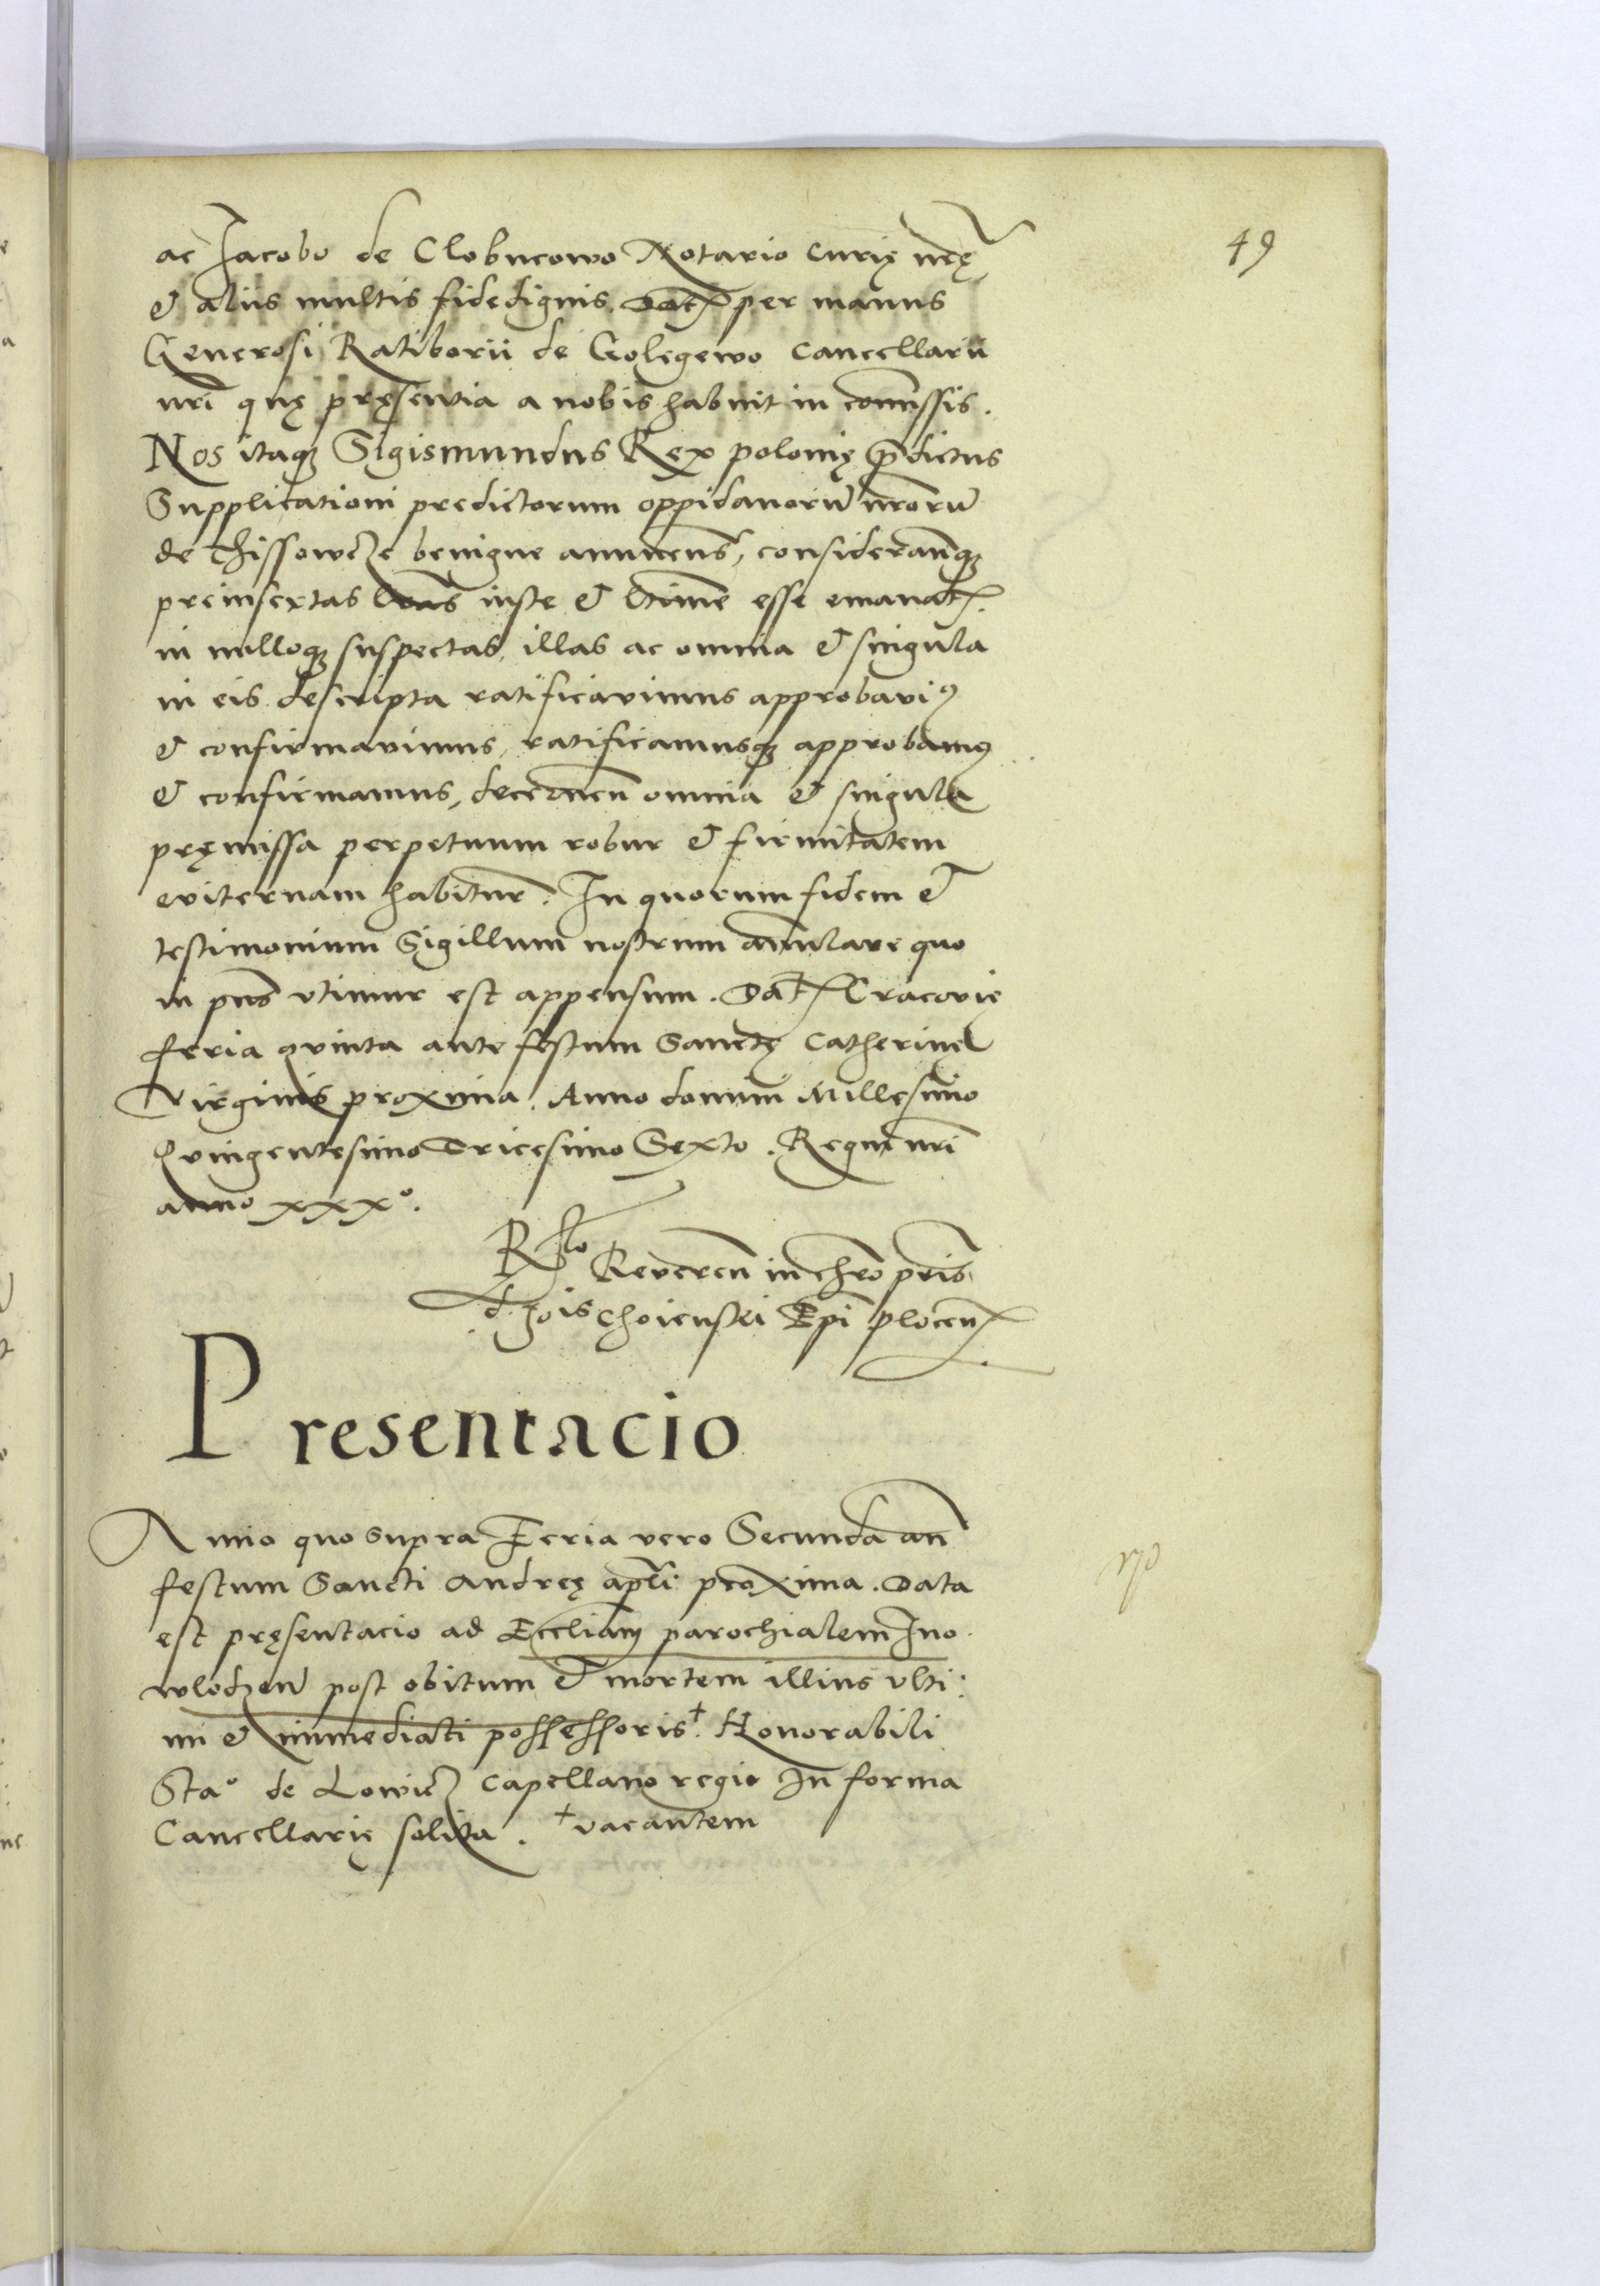 49
ac Jacobo de Clobucowo Notario curię nrę
& aliis multis fidedignis. Dat per manus
Generosi Ratiborii de Golegewo Cancellarii
nri quę pręsentia a nobis habuit in comissis.
Nos itaq Sigismundus Rex polonię pdictus
Supplicationi predictorum oppidanorū nrorū
de Thissowcze benigne annuens, considerantq
preinsertas lras iuste & ltime esse emanat
in nulloq suspectas, illas ac omnia & singula
in eis descripta ratificavimus approbavi9
& confirmavimus, ratificamusq approbam9
& confirmamus, decernen omnia & singula
pręmissa perpetuum robur & firmitatem
eviternam habitur. In quorum fidem &
testimonium Sigillum nostrum annulare quo
in pns vtimur est appensum. Dat Cracovię
feria quinta ante festum Sanctę Catherinę
Virginis proxima. Anno domini Millesimo
Quingentesimo Tricesimo Sexto. Regni nri
anno xxxo.
Rlo Reveren in chro pris
d. Jois Choienski Epi plocen
Presentacio
Anno quo supra Feria vero Secunda an
festum Sancti Andreę apli proxima. Data
est pręsentacio ad Eccliam parochialem Ino
wlodzen post obitum & mortem illius vlti:
mi & immediati possessoris+. Honorabili
Stao de Lowicz Capellano regio In forma
Cancellarię solita. +vacantem